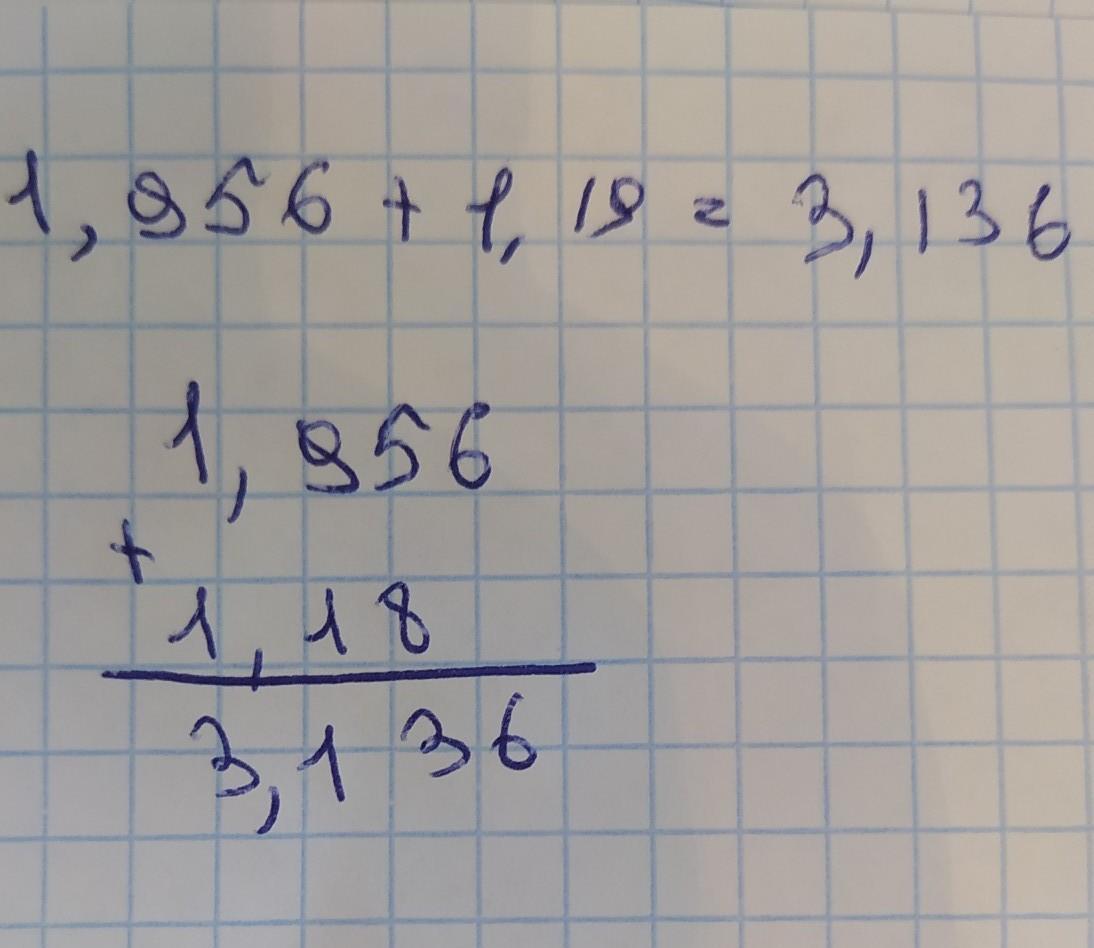 1,956 + 1,18 = 3,136
1,956
+
1,18
3,136